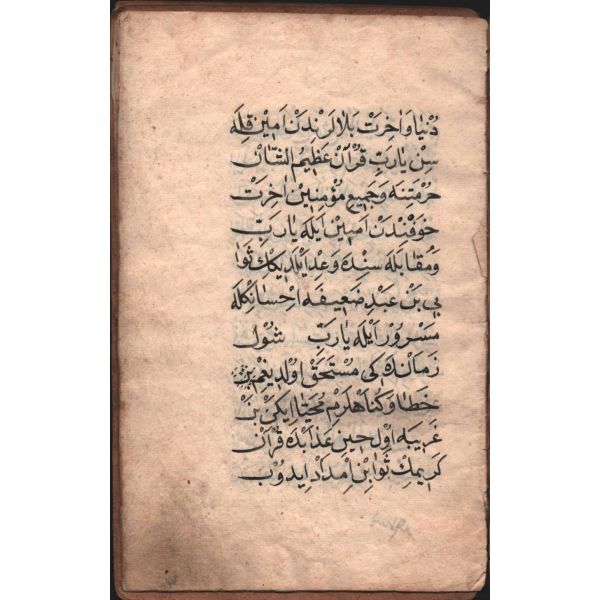 دُنْيَا وَاٰخِرَتْ بَلَالَرِنْدَنْ اَمِينْ قِلَه
سِنْ يَارَبِّ قُرْآنْ عَظِيمُ الشَّانْ
حُرْمَتِنَه وَجَمِيعِ مُؤْمِنِينْ اٰخِرَتْ
خَوْفِنْدَنْ اَمِينْ اَيْلَه يَارَبِّ
وَمُقَابَلَه سِنْدَه وَعْدْ اَيْلَدِيكِكْ ثَوَا
بِي بَنْ عَبْدِ ضَعِيفَه اِحْسَانِكْلَه
مَسْرُورْ اَيْلَه يَارَبِّ شُولْ
زَمَانْدَه كِي مُسْتَحَقْ اُولْدِيغِمْ بَنْ
خَطَا وَكُنَاهْلَرِمْ اِيكَنْ بَنْ
غَرِيبَه اُولْ حِينِ عَذَابْدَه قُرْآنْ
كَرِيمِكْ ثَوَابِنْ اِمْدَادْ اِيدُوبْ